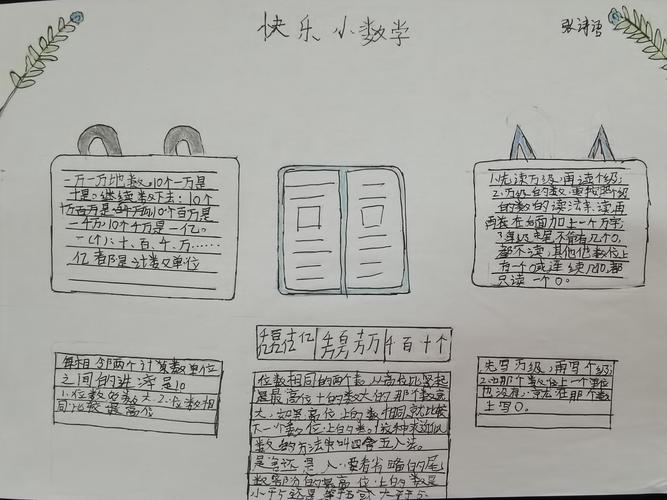 快乐小数学
张诗语
一万一万地数,10个一万是
十是。继续数下去:10个
十万百万是一千万,10个百万是
一千万10个千万是一亿。
一(个)、十、百、千、万……
亿都是计数单位
1.先读万级,再读个级;
2.万级的数,要按个级
的数的读法来读,再
在后面加上一个万字;
3.每级末尾不管有几个0,
都不读,其他数位上
有一个0或连续几个0,都
只读一个0。
每相邻两个计数单位
之间的进率是10
1.位数多的数大.2.位数相
同比较最高位
亿 万 千百十个
先写万级,再写个级;
2.哪个数位上一个单位
也没有,就在那个数
上写0。
位数相同的两个数,从高位比较起
是最高位上的数大的那个数就
大,如果高位上的数相同,就比较
下一个数位上的数,这种求近似
数的方法叫四舍五入法。
是舍还是入,要看省略的尾
数部分的最高位上的数是
小于5还是等于5或大于5